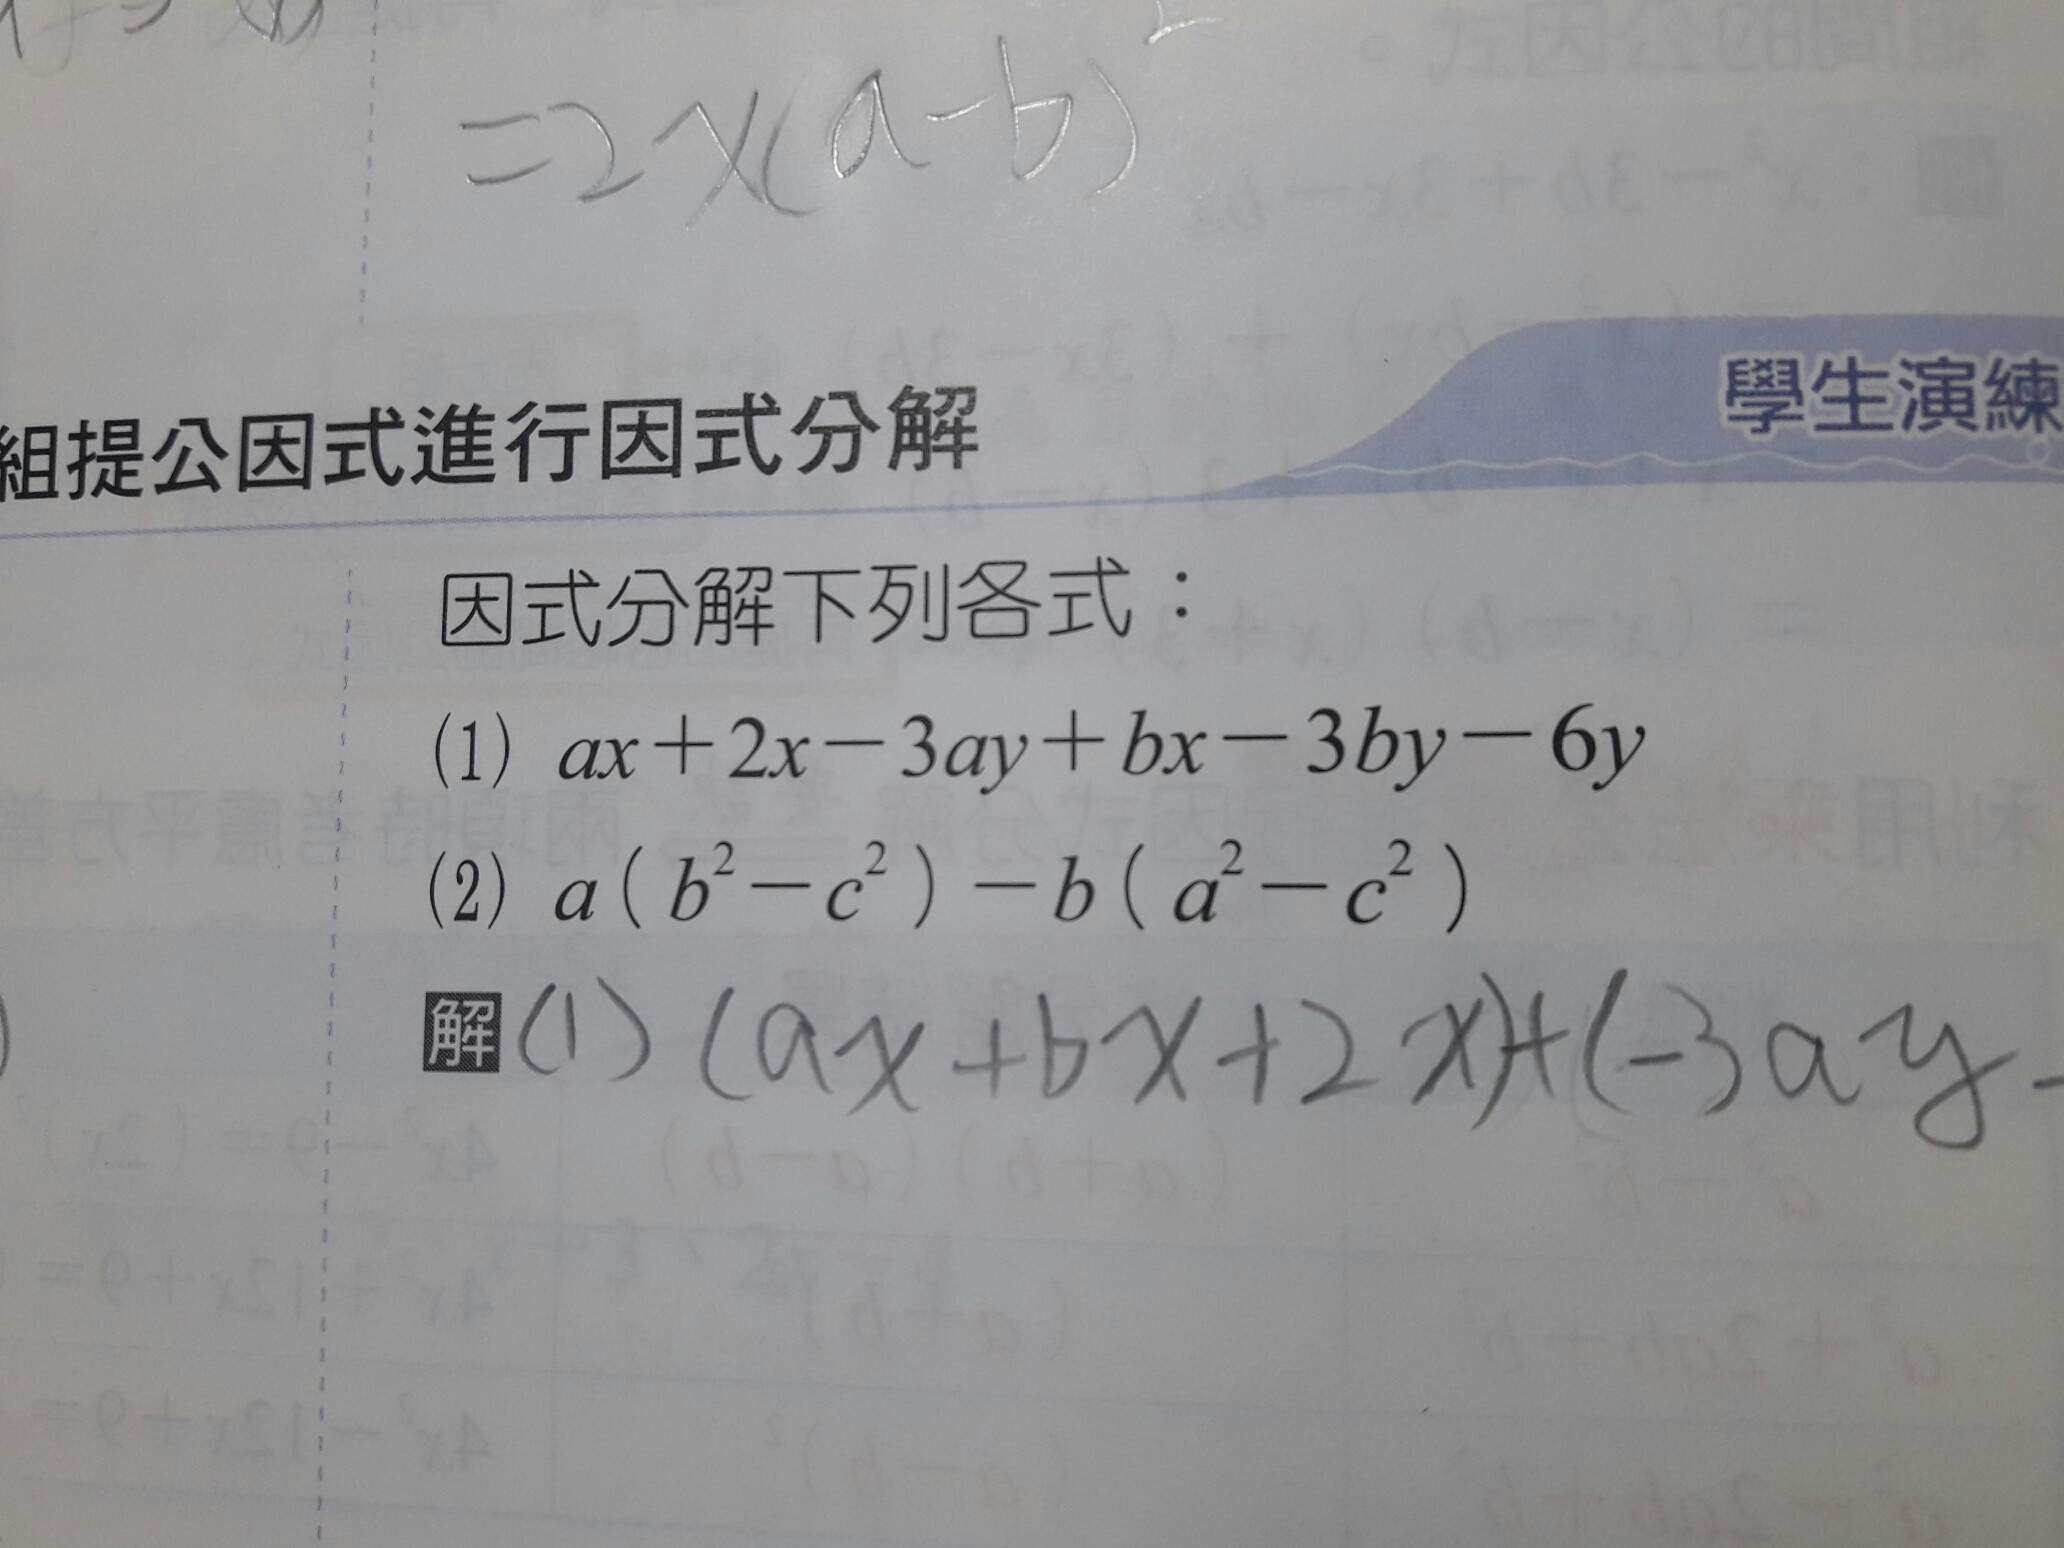 =2x(a-b)²
學生演練
組提公因式進行因式分解
因式分解下列各式：
(1) ax+2x-3ay+bx-3by-6y
(2) a(b²-c²)-b(a²-c²)
解 (1) (ax+bx+2x)+(-3ay-